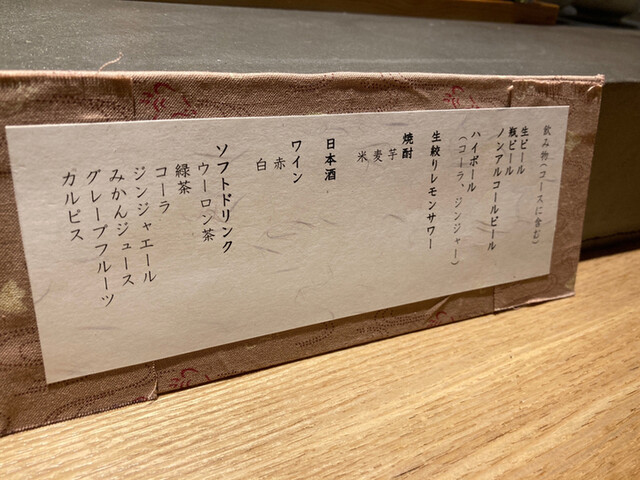 飲み物（コースに含む）
生ビール
瓶ビール
ノンアルコールビール
ハイボール
（コーラ、ジンジャー）
生絞りレモンサワー
焼酎
芋
麦
米
日本酒
ワイン
赤
白
ソフトドリンク
ウーロン茶
緑茶
コーラ
ジンジャエール
みかんジュース
グレープフルーツ
カルピス